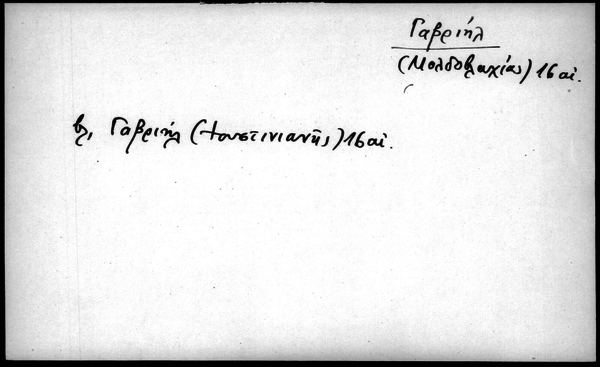 Γαβριήλ
(Μολδοβλαχίας) 16 αἰ.
βλ, Γαβριήλ (Ἰουστινιανῆς) 16 αἰ.